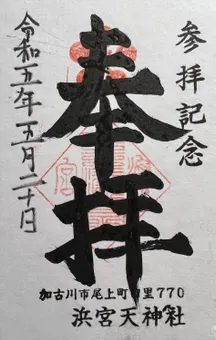 参拝記念
奉拝
令和五年五月二十日
加古川市尾上町口里770
浜宮天神社